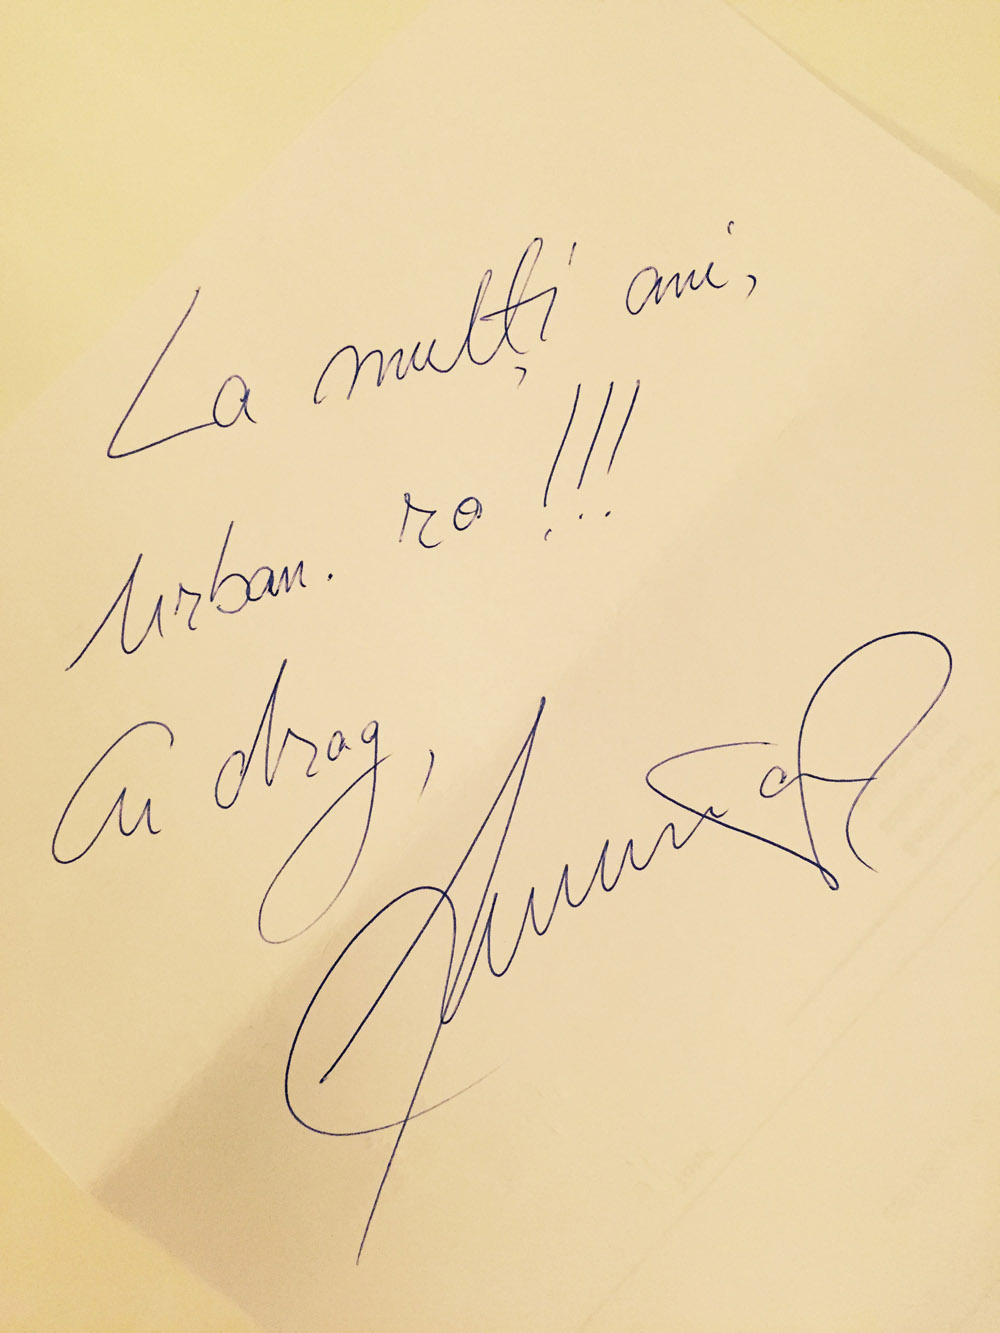 La mulți ani,
Urban.ro!!!
Cu drag,